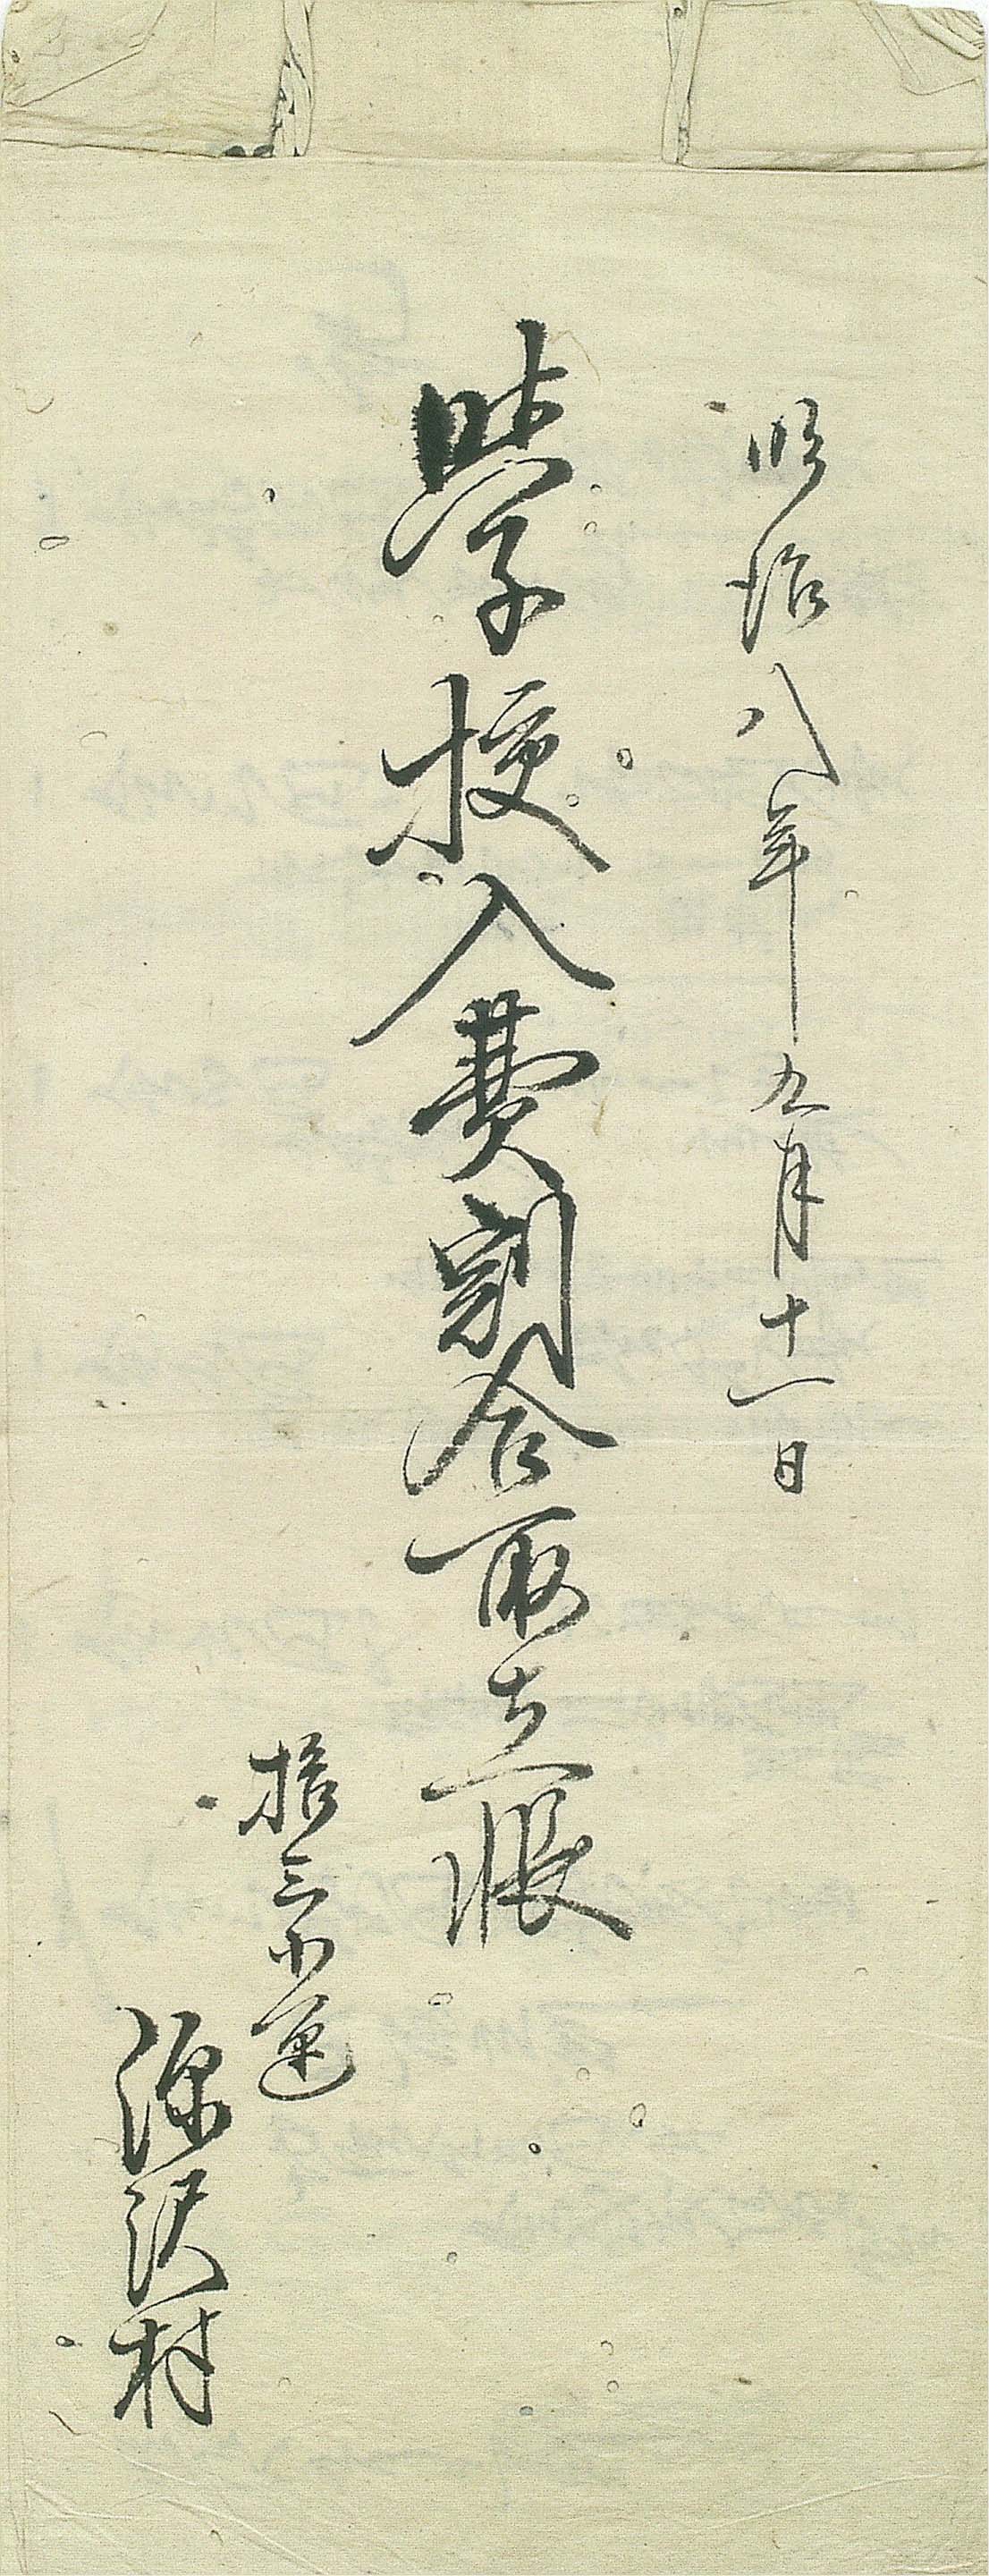 明治八年五月十一日
學校入費割合取立帳
拾三小區
深沢村